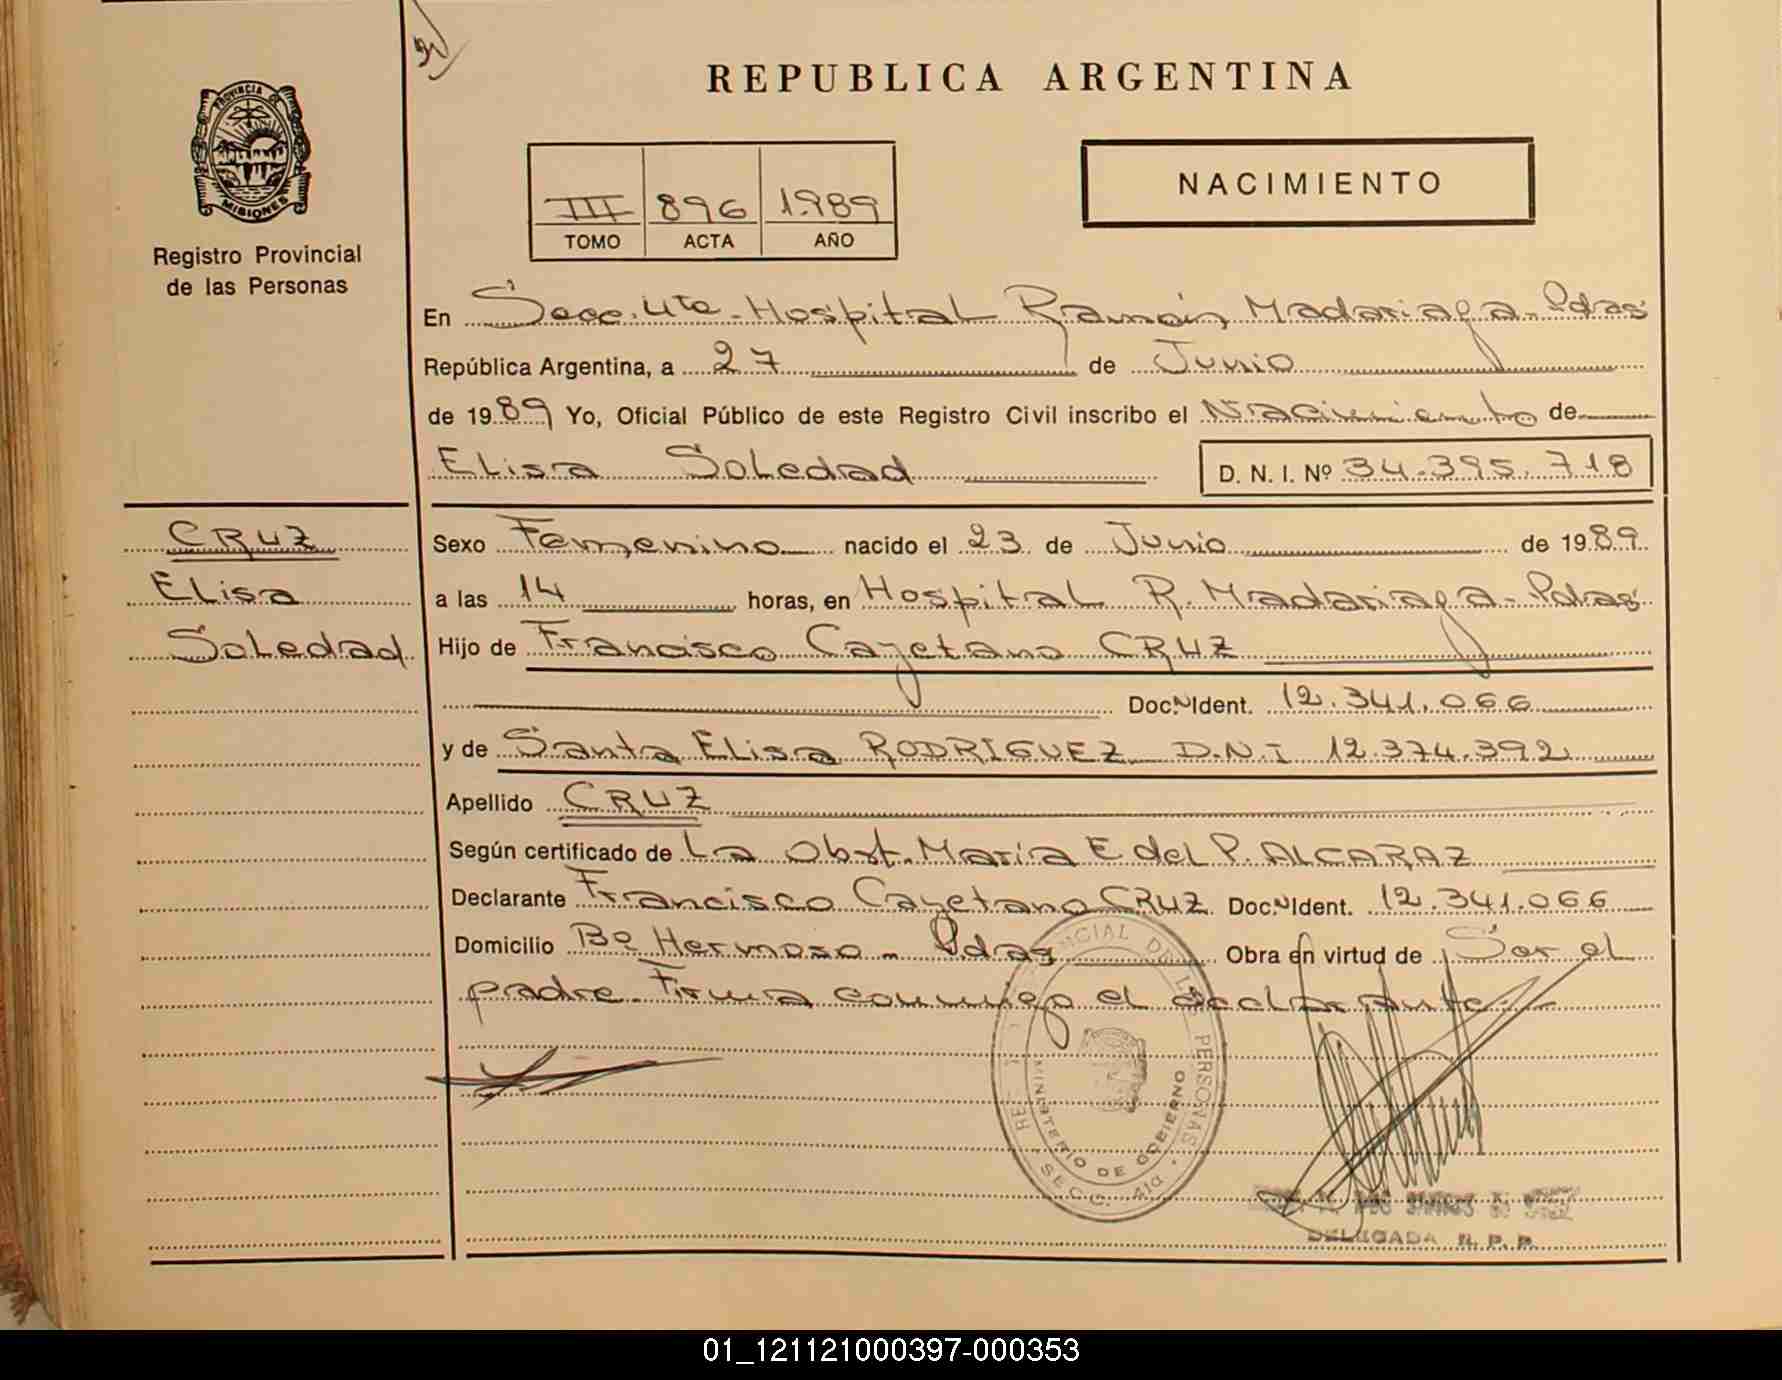 REPUBLICA ARGENTINA
PROVINCIA DE
MISIONES
Registro Provincial
de las Personas
III 896 1989
TOMO ACTA AÑO
NACIMIENTO
En Secc. 4ta - Hospital Ramón Madariaga - Pdas
República Argentina, a 27 de Junio
de 1989 Yo, Oficial Público de este Registro Civil inscribo el Nacimiento de
Elisa Soledad D. N. I. Nº 34.395.718
CRUZ
Elisa
Soledad
Sexo Femenino nacido el 23 de Junio de 1989
a las 14 horas, en Hospital R. Madariaga - Pdas
Hijo de Francisco Cayetano CRUZ
Doc. Ident. 12.341.066
y de Santa Elisa RODRIGUEZ D.N.I 12.374.392
Apellido CRUZ
Según certificado de La Obst. María E del P. ALCARAZ
Declarante Francisco Cayetano CRUZ Doc. Ident. 12.341.066
Domicilio Bº Hermoso - Pdas Obra en virtud de Ser el
padre. Firma conmigo el declarante
DE LAS PERSONAS
MINISTERIO DE GOBIERNO
SECC. 4ta
DELEGADA R. P. P.
01_121121000397-000353